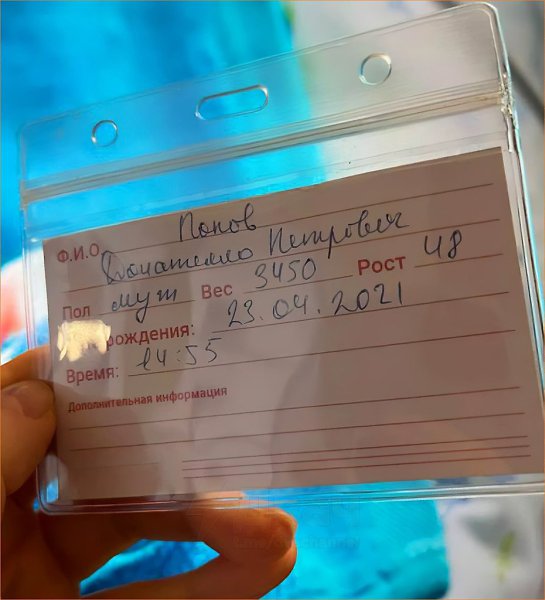 Попов
Ф.И.О. Донателло Петрович
Пол муж Вес 3450 Рост 48
рождения: 23.04.2021
Время: 14:55
Дополнительная информация